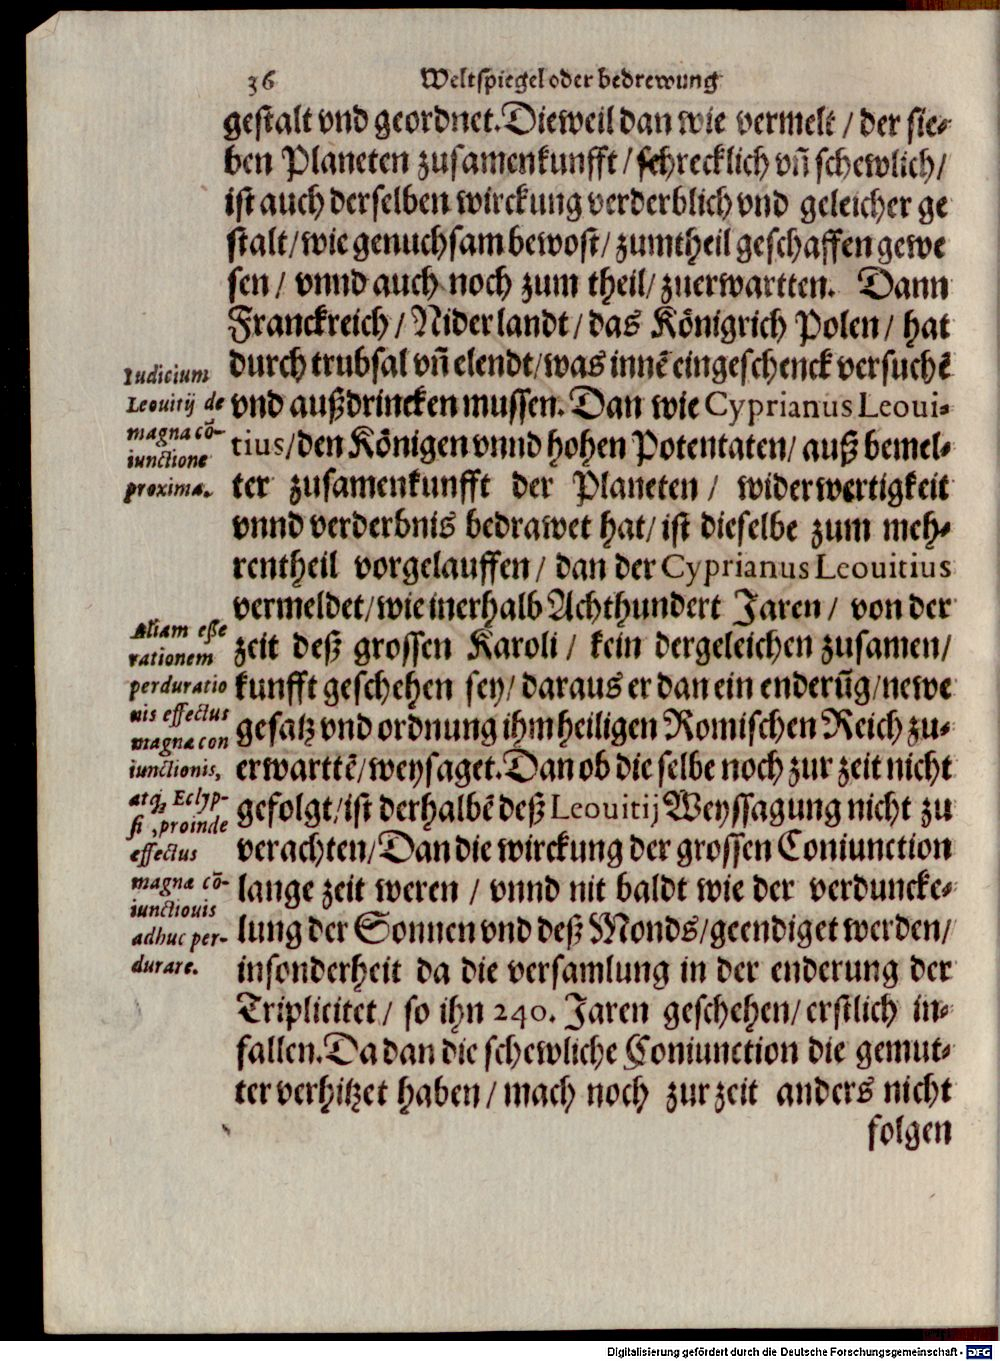 36 Weltspiegel oder bedrewung
gestalt vnd geordnet. Dieweil dan wie vermelt / der sie-
ben Planeten zusamenkunfft / schrecklich vñ schewlich /
ist auch derselben wirckung verderblich vnd geleicher ge
stalt / wie genuchsam bewost / zumtheil geschaffen gewe
sen / vnnd auch noch zum theil / zuerwartten. Dann
Franckreich / Niderlandt / das Königrich Polen / hat
durch trubsal vñ elendt / was innẽ eingeschenck versuchẽ
vnd außdrincken mussen. Dan wie Cyprianus Leoui-
tius / den Königen vnnd hohen Potentaten / auß bemel-
ter zusamenkunfft der Planeten / widerwertigkeit
vnnd verderbnis bedrawet hat / ist dieselbe zum meh-
rentheil vorgelauffen / dan der Cyprianus Leouitius
vermeldet / wie inerhalb Achthundert Jaren / von der
zeit deß grossen Karoli / kein dergeleichen zusamen /
kunfft geschehen sey / daraus er dan ein enderũg / newe
gesatz vnd ordnung ihm heiligen Romischen Reich zu-
erwarttẽ / weysaget. Dan ob die selbe noch zur zeit nicht
gefolgt / ist derhalbẽ deß Leouitij Weyssagung nicht zu
verachten / Dan die wirckung der grossen Coniunction
lange zeit weren / vnnd nit baldt wie der verduncke-
lung der Sonnen vnd deß Monds / geendiget werden /
insonderheit da die versamlung in der enderung der
Triplicitet / so ihn 240. Jaren geschehen / erstlich in-
fallen. Da dan die schewliche Coniunction die gemut-
ter verhitzet haben / mach noch zur zeit anders nicht
folgen
Iudicium
Leouitij de
magna cõ-
iunctione
proxima.
Aliam esse
rationem
perduratio
nis effectus
magnæ con
iunctionis,
atq; Eclyp-
si, proinde
effectus
magnæ cõ-
iunctiouis
adhuc per-
durare.
Digitalisierung gefördert durch die Deutsche Forschungsgemeinschaft - DFG